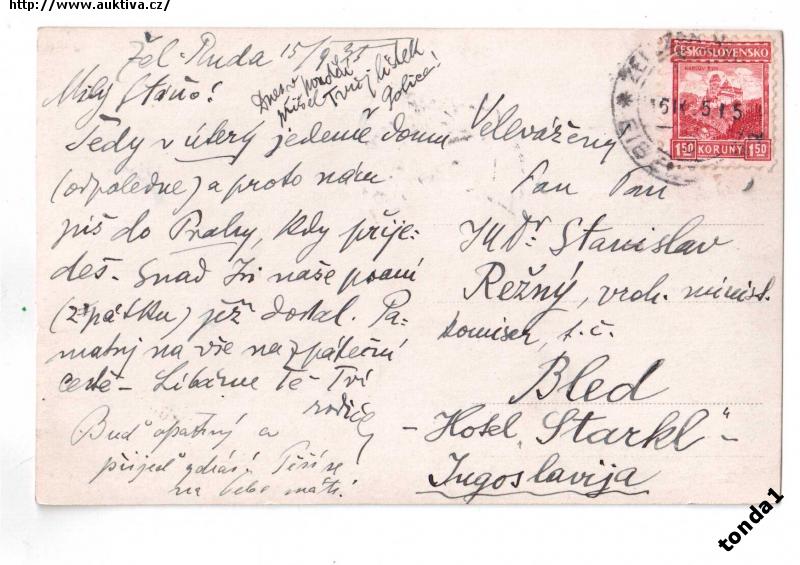 http://www.auktiva.cz/
Žel-Ruda 15/9 35
Dnes v pondělí
přišel Tvůj lístek
Golica!
Milý Stáňo!
Tedy v úterý jedeme domů
(odpoledne) a proto nám
piš do Prahy, kdy přije-
deš. Snad jsi naše psaní
(z pátku) již dostal. Pa-
matuj na vše na zpáteční
cestě - Líbáme Tě - Tví
rodiče
Buď opatrný a
přijeď zdráv! Těší se
na tebe máti!
Velevážený
Pan Pan
JUDr Stanislav
Režný, vrch. minist.
komisař, t. č.
Bled
- Hotel „Starkl“ -
Jugoslavija
ČESKOSLOVENSKO
KARLŮV TÝN
1.50 KORUNY 1.50
tonda1